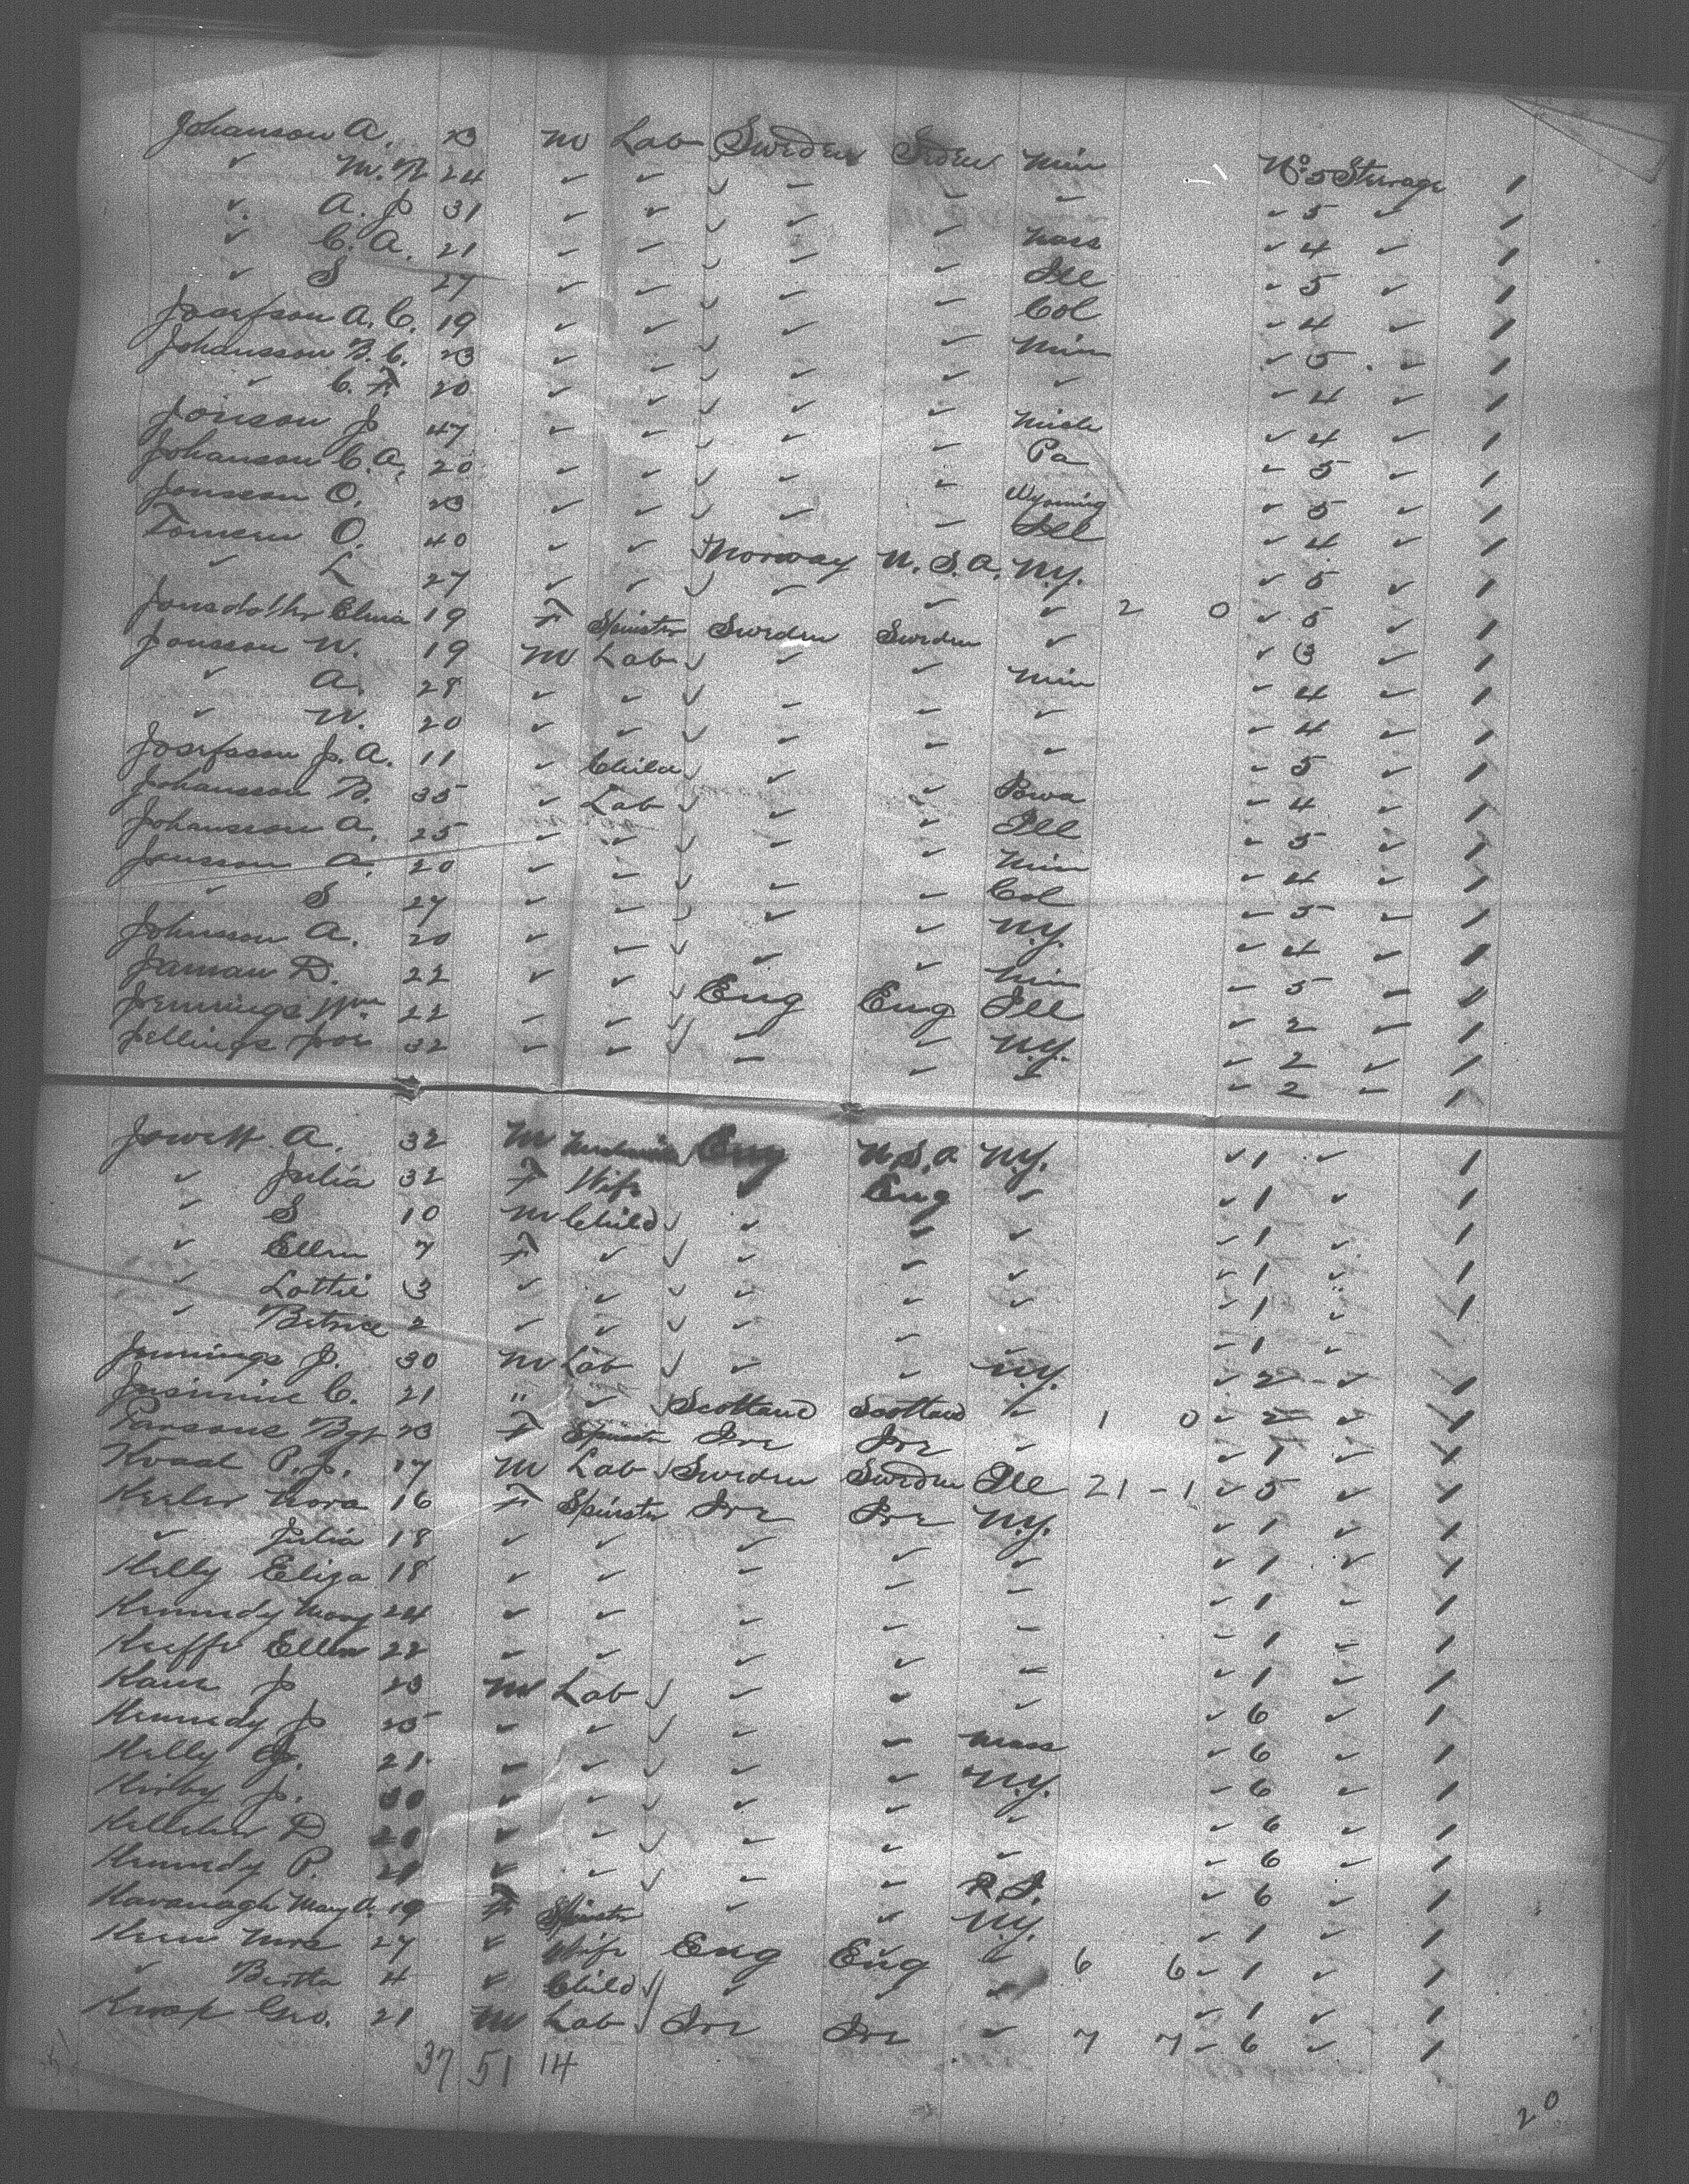 Johanson A. 23 M Lab Sweden Sweden Min No. 5 Steerage 1
✓ M. N 24 ✓ ✓ ✓ ✓ ✓ ✓ ✓ 5 ✓ 1
✓ A. J 31 ✓ ✓ ✓ ✓ ✓ Mass ✓ 4 ✓ 1
✓ C. A. 21 ✓ ✓ ✓ ✓ ✓ Ill ✓ 5 ✓ 1
✓ S 27 ✓ ✓ ✓ ✓ ✓ Col ✓ 4 ✓ 1
Josefson A. C. 19 ✓ ✓ ✓ ✓ ✓ Min ✓ 5 ✓ 1
Johansson B. C. 23 ✓ ✓ ✓ ✓ ✓ ✓ ✓ 4 ✓ 1
✓ C. F. 20 ✓ ✓ ✓ ✓ ✓ Mich ✓ 4 ✓ 1
Jonson J 47 ✓ ✓ ✓ ✓ ✓ Pa ✓ 5 ✓ 1
Johanson C. A. 20 ✓ ✓ ✓ ✓ ✓ Wyoming ✓ 5 ✓ 1
Jonsson O. 23 ✓ ✓ ✓ ✓ ✓ Ill ✓ 4 ✓ 1
O. 40 ✓ ✓ ✓ Norway U. S. A. N.Y. ✓ 5 ✓ 1
✓ L 27 ✓ ✓ ✓ ✓ ✓ ✓ 2 0 ✓ 5 ✓ 1
Jonsdotter 19 F Spinster Sweden Sweden ✓ ✓ 3 ✓ 1
Jonsson W. 19 M Lab ✓ ✓ ✓ Min ✓ 4 ✓ 1
✓ A. 28 ✓ ✓ ✓ ✓ ✓ ✓ ✓ 4 ✓ 1
✓ W. 20 ✓ ✓ ✓ ✓ ✓ ✓ ✓ 5 ✓ 1
Josefsson J. A. 11 ✓ Child ✓ ✓ ✓ Iowa ✓ 4 ✓ 1
Johansson B. 35 ✓ Lab ✓ ✓ ✓ Ill ✓ 5 ✓ 1
Johansson A. 25 ✓ ✓ ✓ ✓ ✓ Min ✓ 4 ✓ 1
Jansson A. 20 ✓ ✓ ✓ ✓ ✓ Col ✓ 5 ✓ 1
✓ S 27 ✓ ✓ ✓ ✓ ✓ N.Y. ✓ 4 ✓ 1
Johnsson A. 20 ✓ ✓ ✓ ✓ ✓ Min ✓ 5 ✓ 1
Jarman D. 22 ✓ ✓ ✓ Eng Eng Ill ✓ 2 ✓ 1
Jennings Wm 22 ✓ ✓ ✓ ✓ ✓ N.Y. ✓ 2 ✓ 1
Jellings Jos 32 ✓ ✓ ✓ ✓ ✓ ✓ 2 ✓ 1
Jowett A. 32 M Eng U.S.A N.Y. ✓ 1 ✓ 1
✓ Julia 32 F Wife ✓ Eng ✓ ✓ 1 ✓ 1
✓ S 10 M Child ✓ ✓ ✓ ✓ ✓ 1 ✓ 1
✓ Ellen 7 F ✓ ✓ ✓ ✓ ✓ ✓ 1 ✓ 1
✓ Lottie 3 ✓ ✓ ✓ ✓ ✓ ✓ ✓ 1 ✓ 1
✓ Betrice 2 ✓ ✓ ✓ ✓ ✓ ✓ ✓ 1 ✓
Jennings J. 30 M Lab ✓ ✓ ✓ N.Y. ✓ 2 ✓ 1
C. 21 " ✓ ✓ Scotland Scotland ✓ 1 0 ✓ 2 ✓ 1
Parsons Bgt 23 F Spinster Ire Ire ✓ ✓ 1 ✓ 1
P. J. 17 M Lab ✓ Sweden Sweden Ill 21 - 1 ✓ 5 ✓ 1
Nora 16 F Spinster Ire Ire N.Y. ✓ 1 ✓ 1
✓ Julia 18 ✓ ✓ ✓ ✓ ✓ ✓ 1 ✓ 1
Kelly Eliza 18 ✓ ✓ ✓ ✓ ✓ ✓ 1 ✓ 1
Kennedy Mary 24 ✓ ✓ ✓ ✓ ✓ ✓ 1 ✓ 1
Keeffe Ellen 22 ✓ ✓ ✓ ✓ ✓ ✓ 1 ✓ 1
Kane J 23 M Lab ✓ ✓ ✓ ✓ ✓ 6 ✓ 1
Kennedy J 25 ✓ ✓ ✓ ✓ ✓ Mass ✓ 6 ✓ 1
Kelly J. 21 ✓ ✓ ✓ ✓ ✓ N.Y. ✓ 6 ✓ 1
Kirby J. 30 ✓ ✓ ✓ ✓ ✓ ✓ ✓ 6 ✓ 1
Kelleher D ✓ ✓ ✓ ✓ ✓ ✓ ✓ 6 ✓ 1
Kennedy P. 21 ✓ ✓ ✓ ✓ ✓ R.I. ✓ 6 ✓ 1
Kavanagh Mary A. 19 F Spinster ✓ ✓ N.Y. ✓ 1 ✓ 1
Mrs 27 ✓ Wife Eng Eng ✓ 6 6 ✓ 1 ✓ 1
✓ Bertha 4 ✓ Child ✓ ✓ ✓ ✓ ✓ 1 ✓ 1
Knox Geo. 21 M Lab ✓ Ire Ire ✓ 7 7 ✓ 6 ✓ 1
37 51 14
20